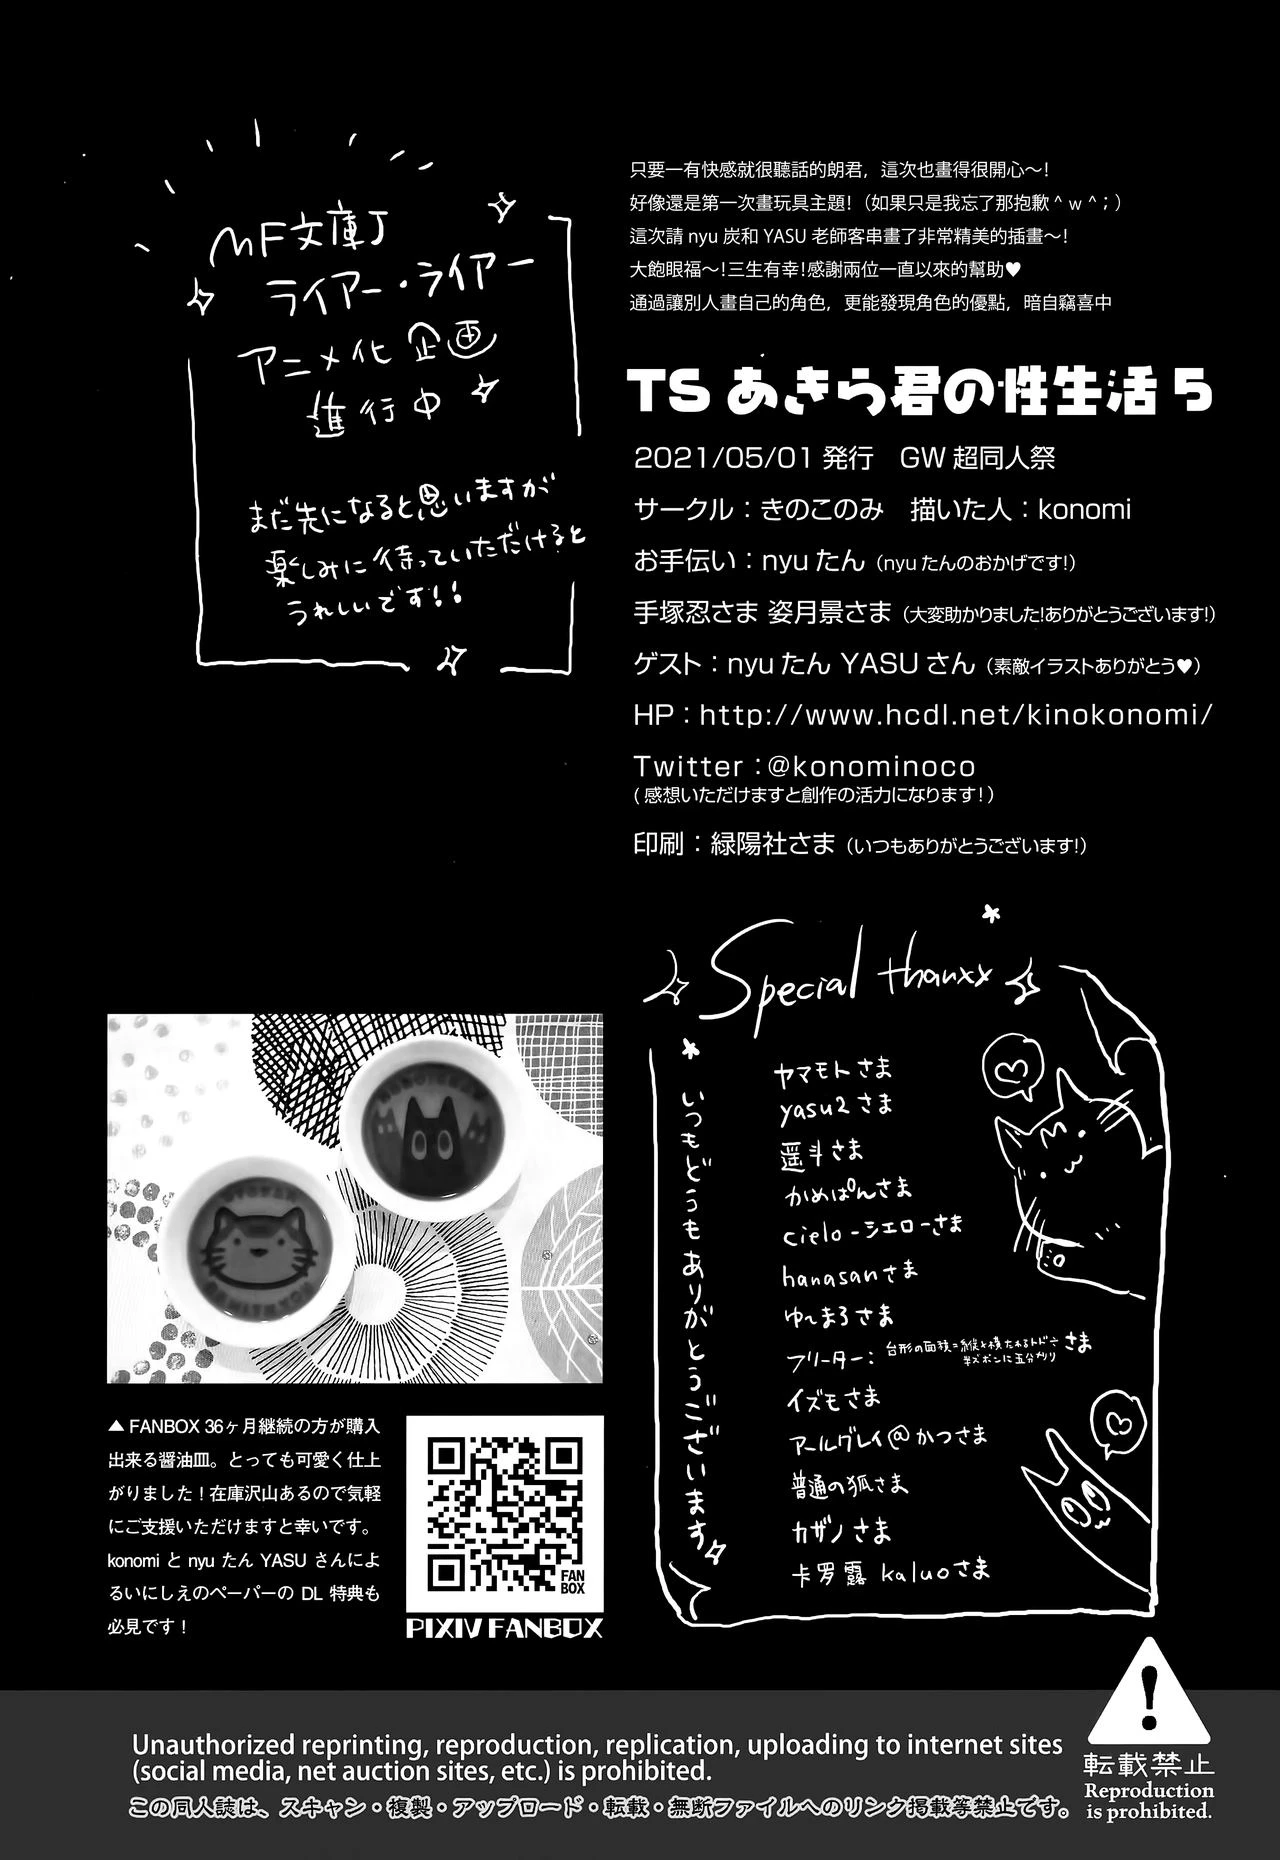 MF文庫J
ライアー・ライアー
アニメ化企画
進行中
まだ先になると思いますが
楽しみに待っていただけると
うれしいです!!
只要一有快感就很聽話的朗君，這次也畫得很開心～！
好像還是第一次畫玩具主題！（如果只是我忘了那抱歉＾ｗ＾；）
這次請 nyu 炭和 YASU 老師客串畫了非常精美的插畫～！
大飽眼福～！三生有幸！感謝兩位一直以來的幫助♥
通過讓別人畫自己的角色，更能發現角色的優點，暗自竊喜中
TSあきら君の性生活5
2021/05/01発行　GW超同人祭
サークル：きのこのみ　描いた人：konomi
お手伝い：nyuたん（nyuたんのおかげです!）
手塚忍さま 姿月景さま（大変助かりました!ありがとうございます!）
ゲスト：nyuたん YASUさん（素敵イラストありがとう♥）
HP：http://www.hcdl.net/kinokonomi/
Twitter：@konominoco
(感想いただけますと創作の活力になります！)
印刷：緑陽社さま（いつもありがとうございます!）
Special thanxx
いつもどうもありがとうございます
ヤマモトさま
yasu2さま
遥斗さま
かめぱんさま
cielo-シエローさま
hanasanさま
ゆ〜まろさま
フリーター：台形の面積=縦と横たわるトドで
半ズボンに五分刈り さま
イズモさま
アールグレイ@かつさま
普通の狐さま
カザノさま
卡罗露 kaluoさま
▲FANBOX 36ヶ月継続の方が購入
出来る醤油皿。とっても可愛く仕上
がりました！在庫沢山あるので気軽
にご支援いただけますと幸いです。
konomiとnyuたんYASUさんによ
るいにしえのペーパーのDL特典も
必見です！
FAN
BOX
PIXIV FANBOX
Unauthorized reprinting, reproduction, replication, uploading to internet sites
(social media, net auction sites, etc.) is prohibited.
この同人誌は、スキャン・複製・アップロード・転載・無断ファイルへのリンク掲載等禁止です。
転載禁止
Reproduction
is prohibited.